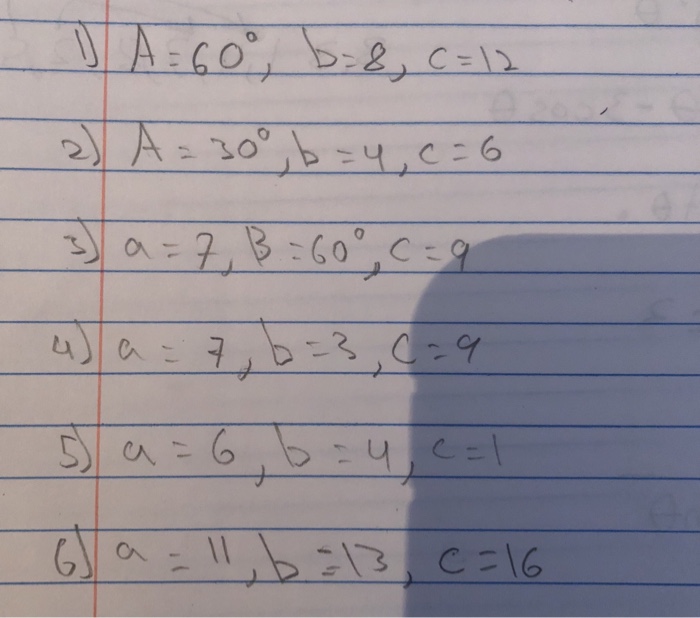 1) A = 60°, b = 8, c = 12
2) A = 30°, b = 4, c = 6
3) a = 7, B = 60°, c = 9
4) a = 7, b = 3, c = 9
5) a = 6, b = 4, c = 1
6) a = 11, b = 13, c = 16